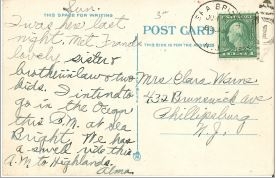 Sun.
THIS SPACE FOR WRITING
POST CARD
I was here last
night. Met Frank's
lovely sister &
brother in law & two
kids. I intend to
go in the Ocean
this P.M. at Sea
Bright. We had
a swell ride this
A.M. to Highlands.
Alma.
Mrs Clara Warne
432 Brunswick Ave
Phillipsburg
N.J.